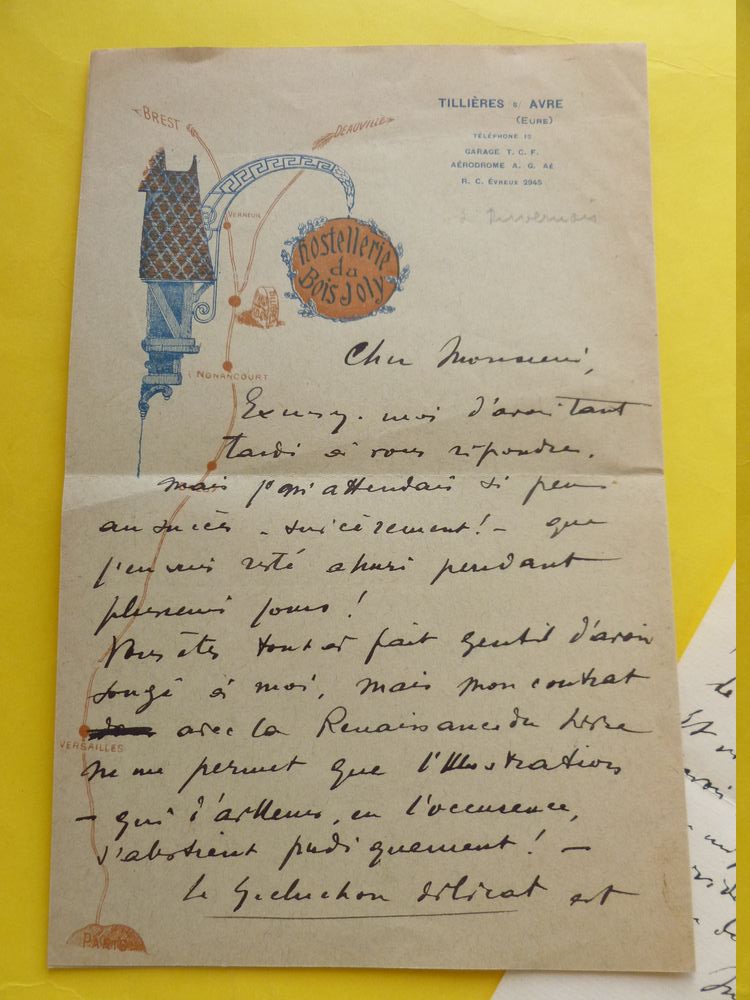 TILLIÈRES s/ AVRE
(EURE)
TÉLÉPHONE 15
GARAGE T. C. F.
AÉRODROME A. G. AÉ
R. C. ÉVREUX 2945
BREST
DEAUVILLE
VERNEUIL
Hostellerie
du
Bois Joly
NONANCOURT
Cher Monsieur,
Excusez-moi d'avoir tant
tardé à vous répondre.
Mais j'm'attendais si peu
au succès - sincèrement! - que
j'en suis resté ahuri pendant
plusieurs jours!
Vous êtes tout à fait gentil d'avoir
songé à moi, mais mon contrat
avec la Renaissance du Livre
VERSAILLES
ne me permet que l'Illustration
- qui d'ailleurs, en l'occurence,
s'abstient pudiquement! -
Le Greluchon délicat est
PARIS